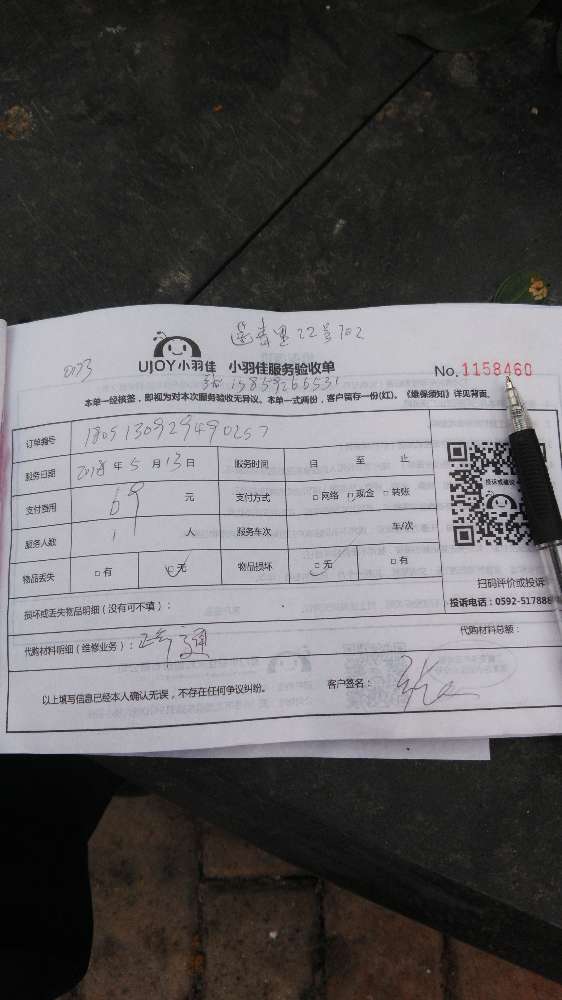 22号702
0173
UJOY小羽佳 小羽佳服务验收单 No.1158460
本单一经核签，即视为对本次服务验收无异议。本单一式两份，客户留存一份(红)。《维保须知》详见背面。
订单编号
服务日期 2018年5月13日 服务时间 自 至 止
支付费用 69 元 支付方式 □网络 □现金 □转账
服务人数 1 人 服务车次 车/次
物品丢失 □有 □无 物品损坏 □无 □有
投诉或建议
扫码评价或投诉
投诉电话：0592-517888
损坏或丢失物品明细（没有可不填）：
代购材料明细（维修业务）： 代购材料总额：
以上填写信息已经本人确认无误，不存在任何争议纠纷。 客户签名：